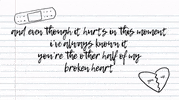 and even though it hurts in this moment
i've always known it
you're the other half of my
broken heart